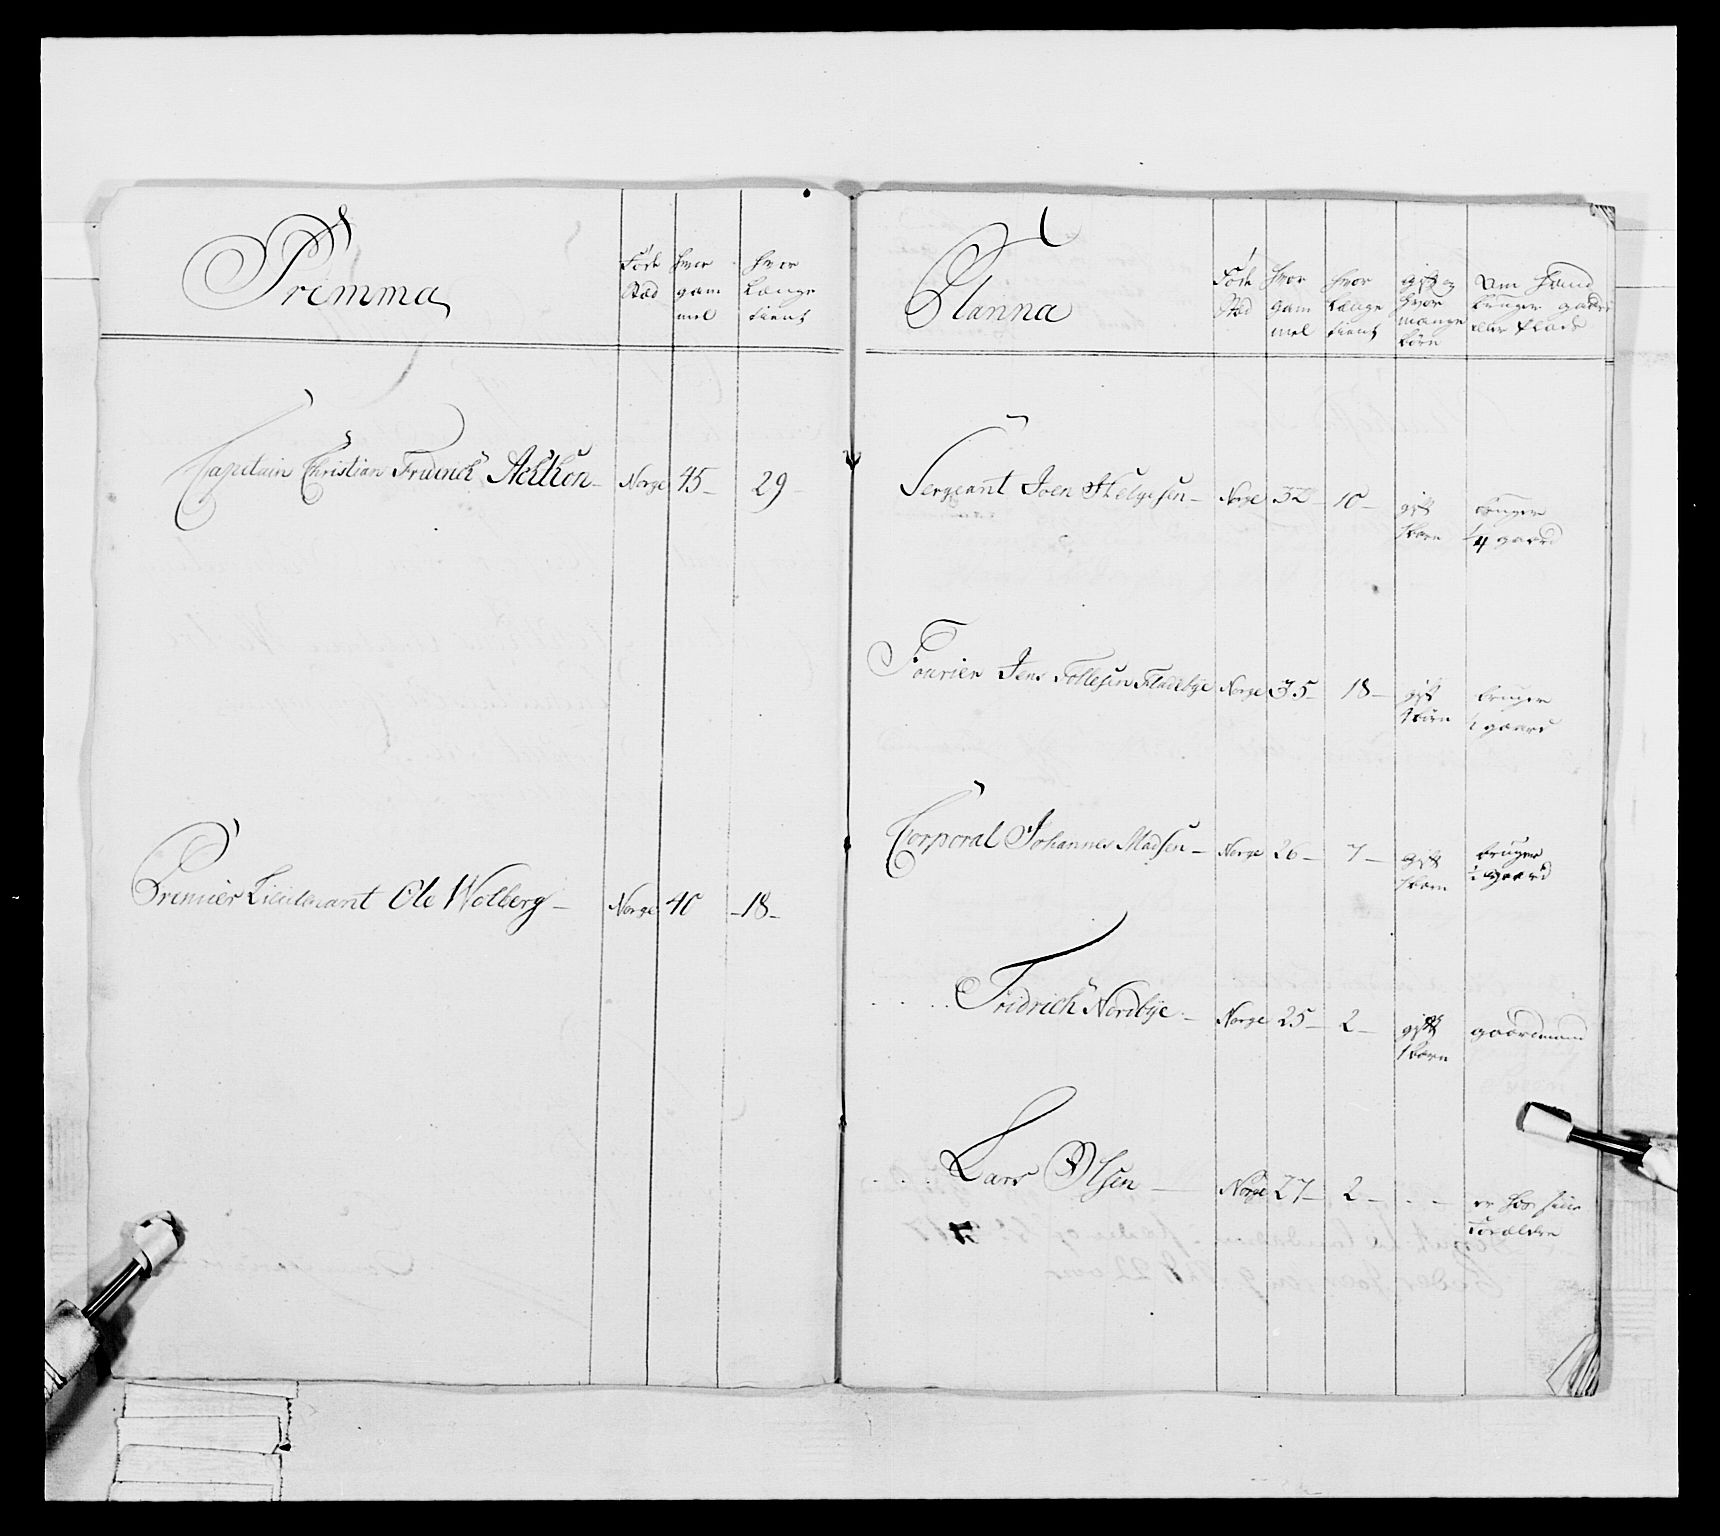 Primma
Føde Stæd
hvor gam mel
hvor Længe tient
Capitain Christian Fridrich Norge 45 29
Premier Lieutenant Ole Wolberg Norge 40 18
Planna
Føde Stæd
hvor gam mel
hvor Længe tient
gift og hvor mange børn
om hand bruger gaard eller Plads
Sergeant Joen Helgesen Norge 32 10 gift 1 barn bruger 1/4 gaard
Fourier Jens Tollefsen Fladebye Norge 35 18 gift 4 børn bruger gaard
Corporal Johannes Madsen Norge 26 7 gift 1 barn bruger 1/2 gaard
Fridrich Nordbye Norge 25 2 gift 1 barn gaardmand
Lars Olsen Norge 27 2 er hos sine Forældre